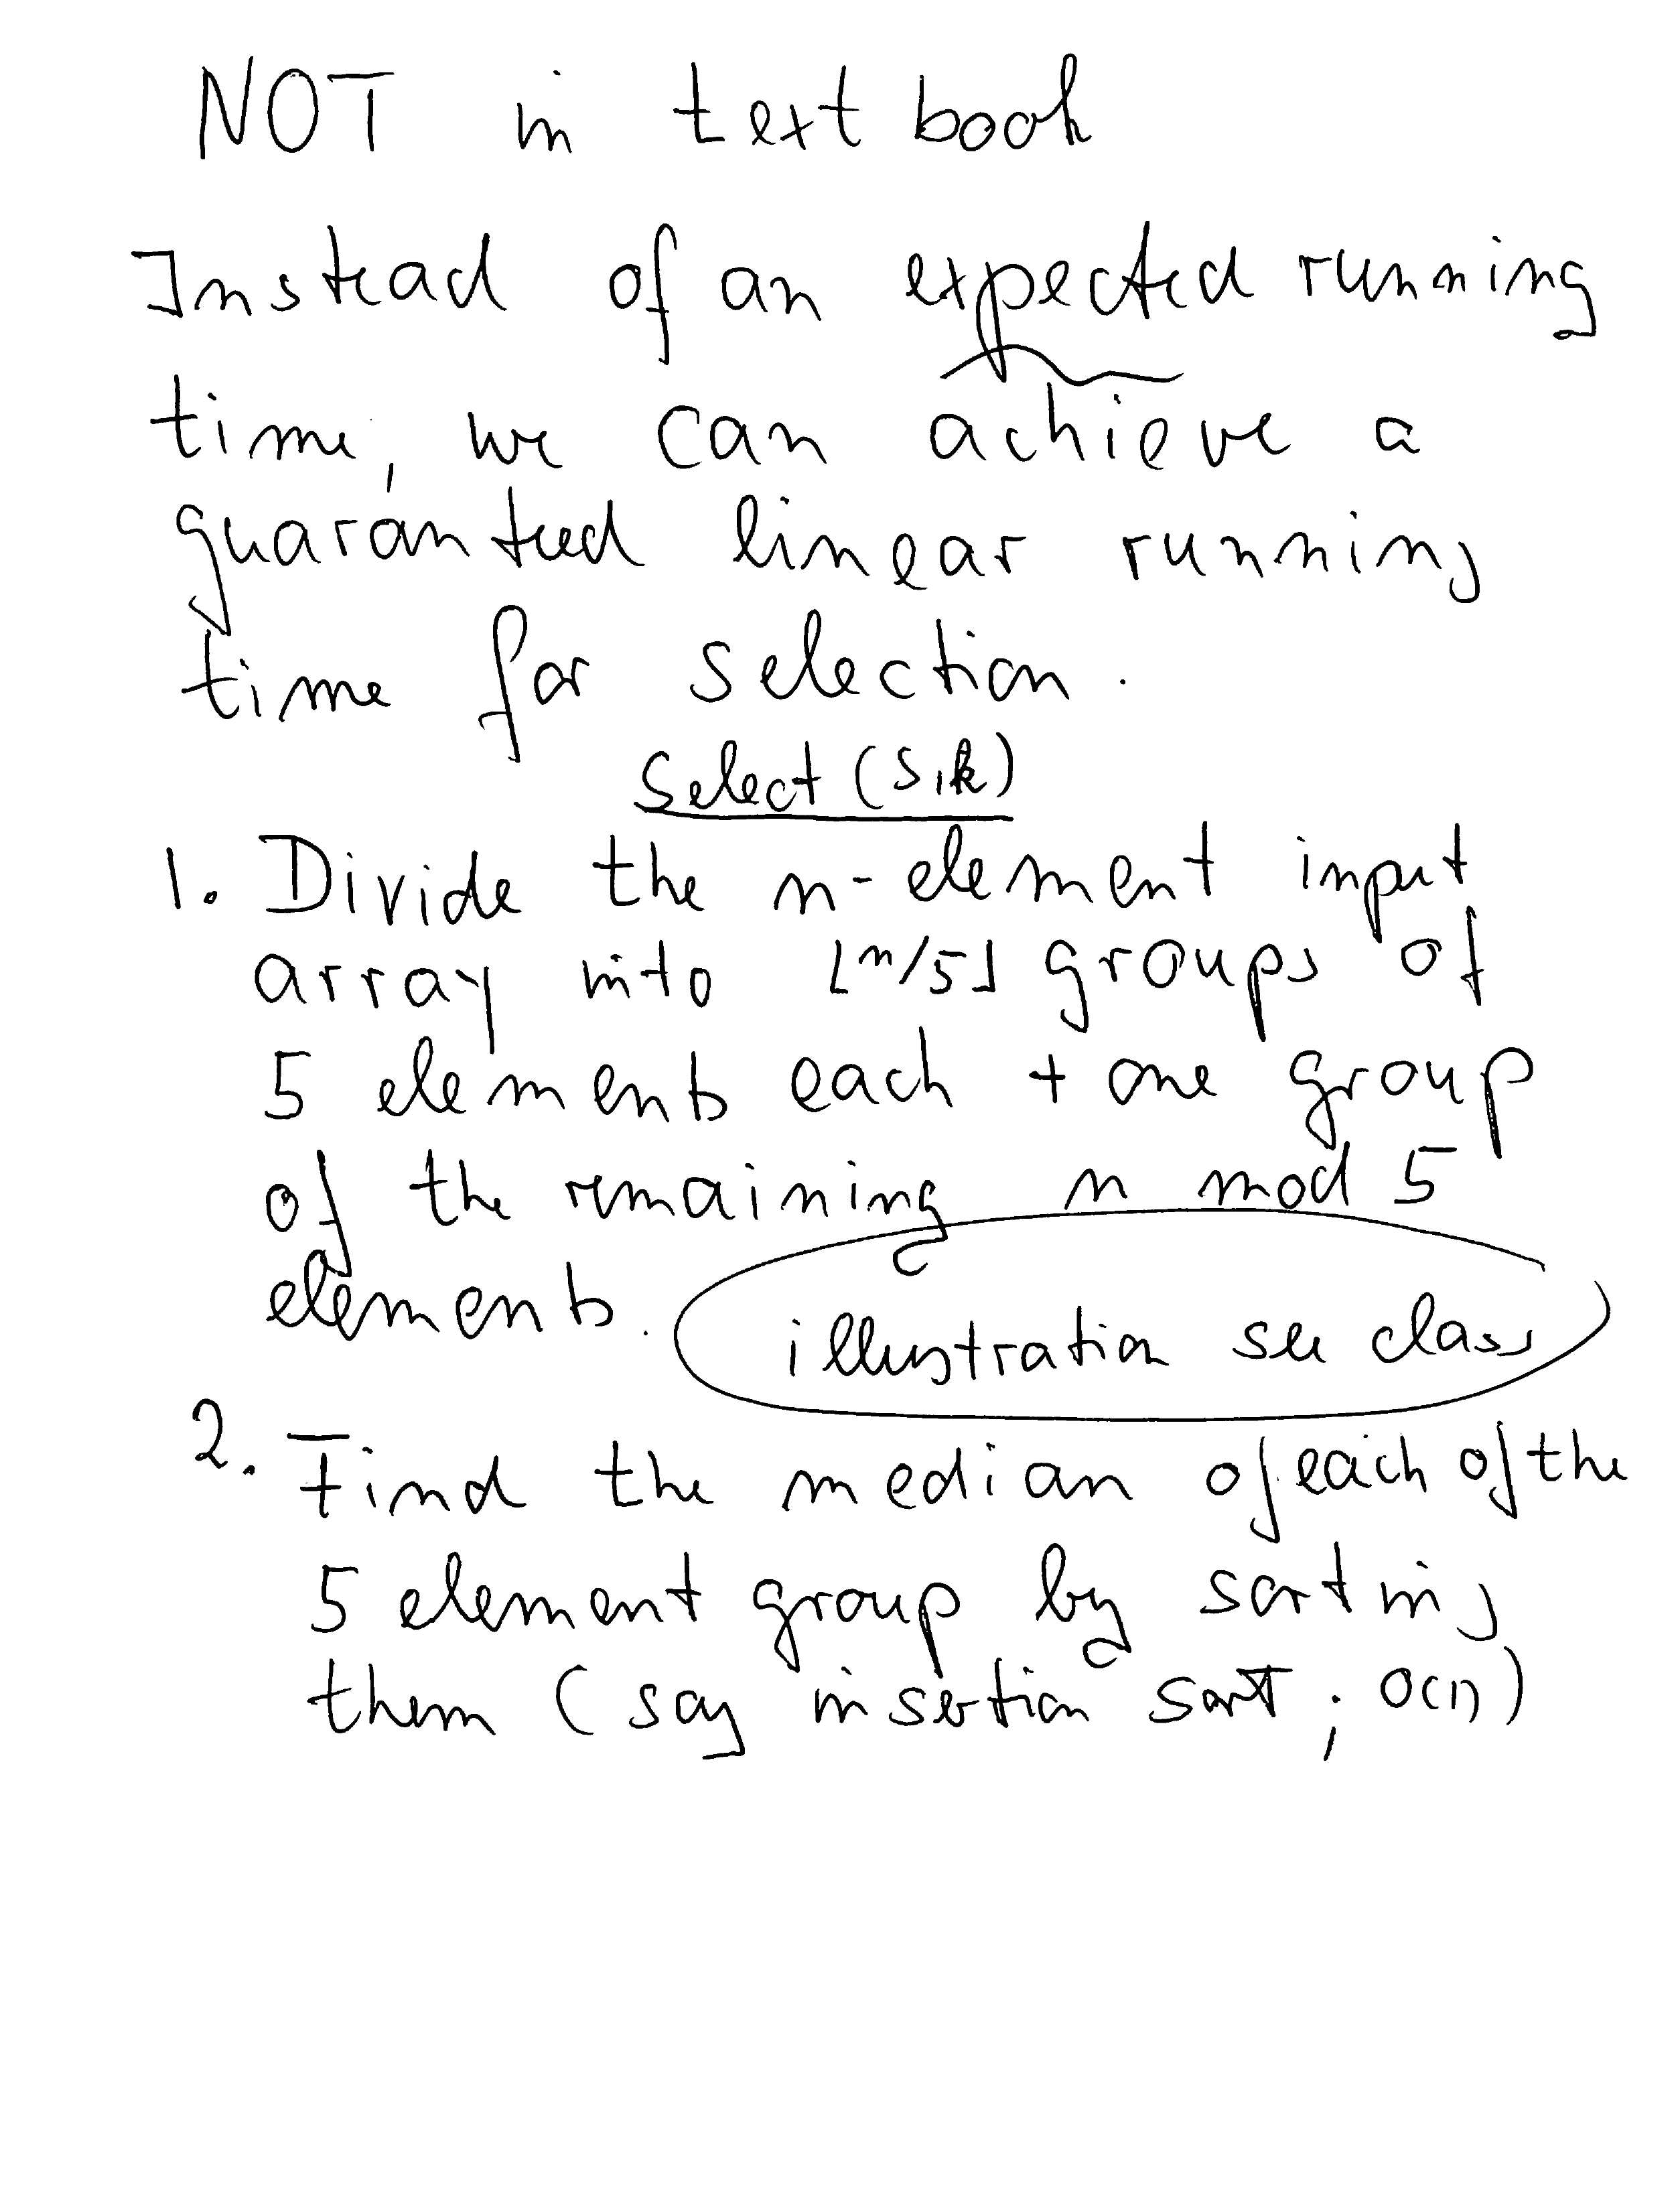 NOT in text book
Instead of an expected running
time, we can achieve a
guaranteed linear running
time for selection.
Select (S,k)
1. Divide the n-element input
array into ⌊n/5⌋ groups of
5 elements each + one group
of the remaining n mod 5
elements.
illustration see class
2. Find the median of each of the
5 element group by sorting
them (say insertion sort; O(1))